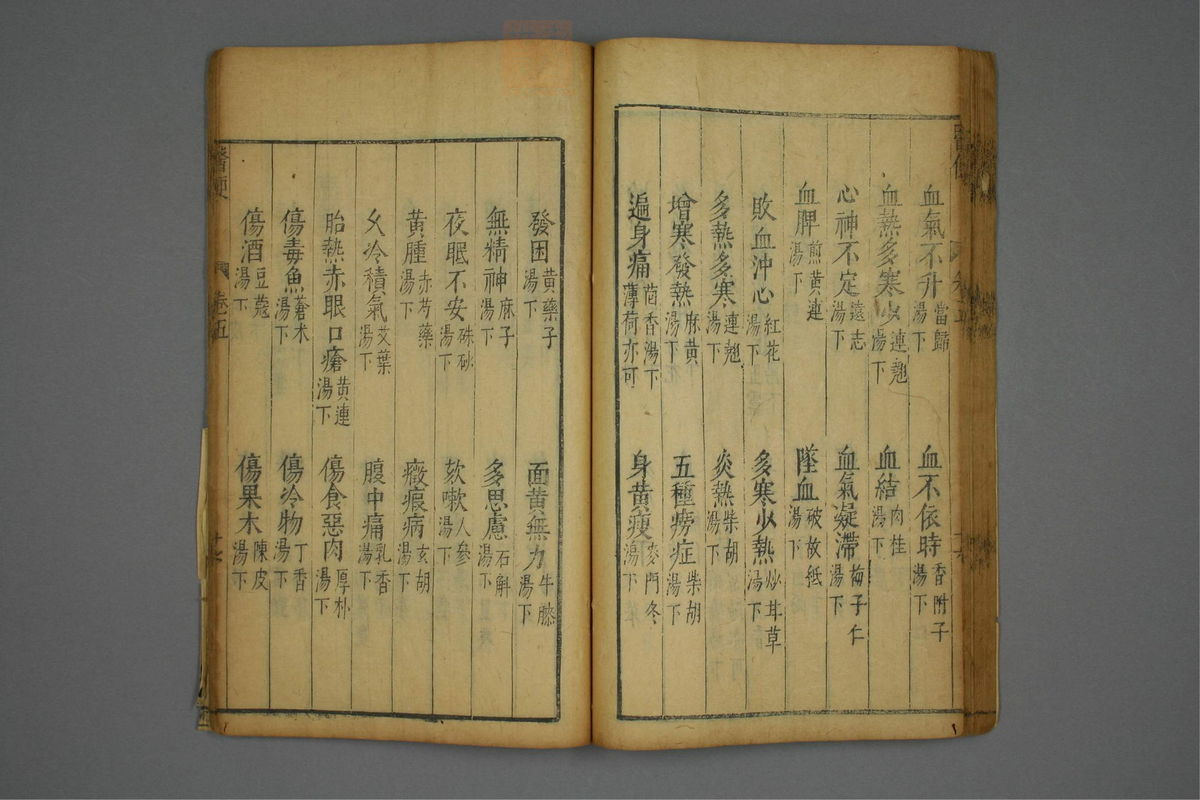 血氣不升當歸湯下　血不依時香附子湯下
血熱多寒少連翹湯下　血結肉桂湯下
心神不定遠志湯下　血氣凝滯梅子仁湯下
血脾煎黃連湯下　墜血破故紙湯下
敗血沖心紅花湯下　多寒少熱炒甘草湯下
多熱多寒連翹湯下　炎熱柴胡湯下
增寒發熱麻黃湯下　五種癆症柴胡湯下
遍身痛茴香湯下薄荷亦可　身黃瘦麥門冬湯下
發困黃藥子湯下　面黃無力牛膝湯下
無精神麻子湯下　多思慮石斛湯下
夜眠不安硃砂湯下　欬嗽人參湯下
黃腫赤芍藥湯下　癥瘕病玄胡湯下
久冷積氣艾葉湯下　腹中痛乳香湯下
胎熱赤眼口瘡黃連湯下　傷食惡肉厚朴湯下
傷毒魚蒼术湯下　傷冷物丁香湯下
傷酒豆蔻湯下　傷果木陳皮湯下
醫便　卷五